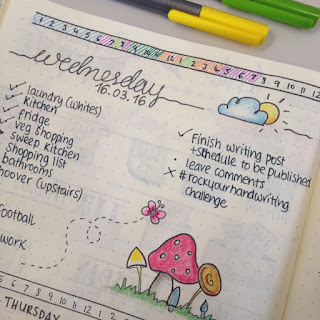 8 9 10 11 12
wednesday
16.03.16
laundry (whites)
kitchen
fridge
veg shopping
sweep kitchen
shopping list
bathrooms
hoover (upstairs)
football
work
finish writing post
+ schedule to be published
leave comments
#rockyourhandwriting
challenge
THURSDAY